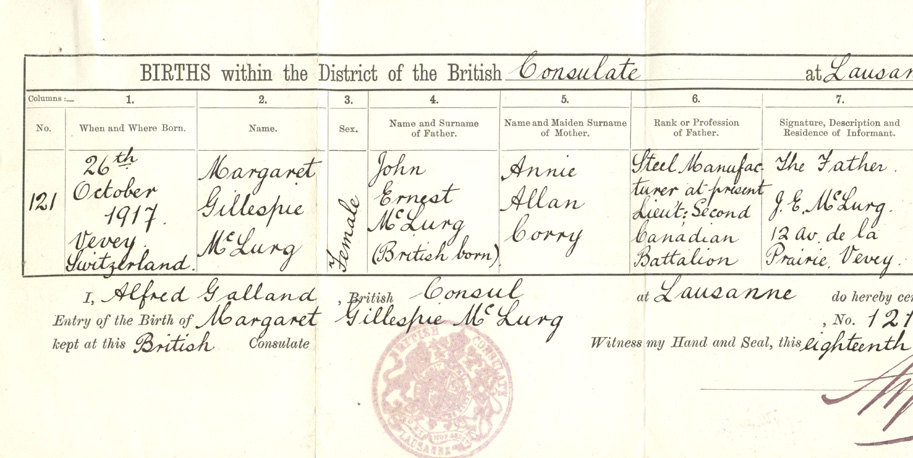 BIRTHS within the District of the British Consulate at Lausan
Columns:— 1. 2. 3. 4. 5. 6. 7.
No. When and Where Born. Name. Sex. Name and Surname of Father. Name and Maiden Surname of Mother. Rank or Profession of Father. Signature, Description and Residence of Informant.
121
26th
October
1917.
Vevey
Switzerland.
Margaret
Gillespie
McLurg
Female
John
Ernest
McLurg
(British born)
Annie
Allan
Corry
Steel Manufac-
turer at present
Lieut: Second
Canadian
Battalion
The Father.
J. E. McLurg.
12 Av. de la
Prairie, Vevey.
I, Alfred Galland, British Consul at Lausanne do hereby cer
Entry of the Birth of Margaret Gillespie McLurg, No. 121
kept at this British Consulate Witness my Hand and Seal, this eighteenth
BRITISH CONSULATE
LAUSANNE